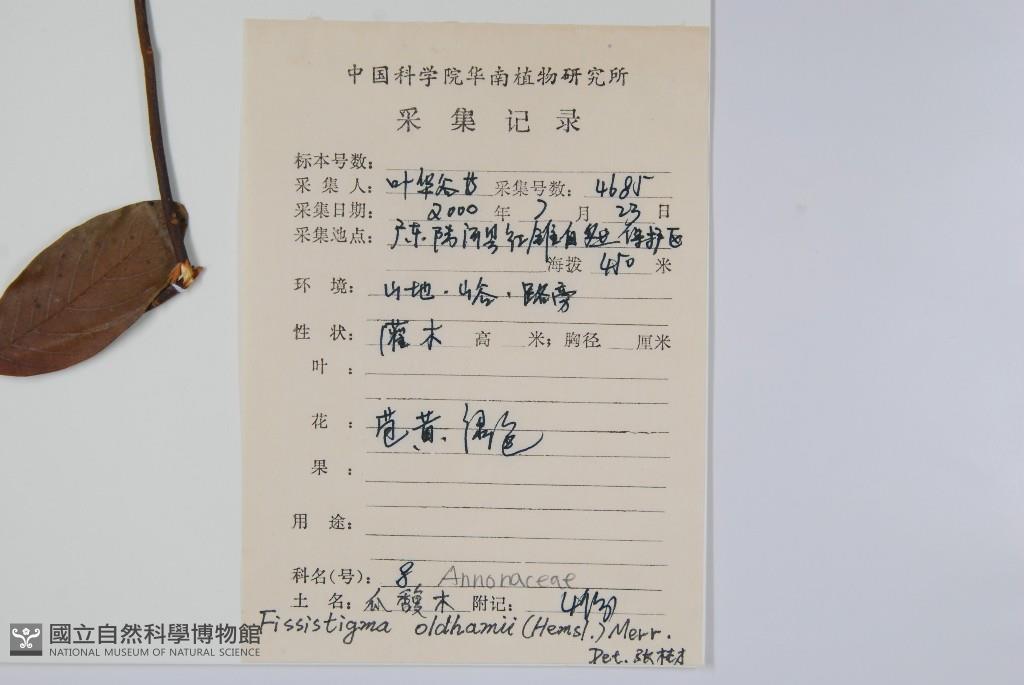 中国科学院华南植物研究所
采集记录
标本号数：
采集人：叶华谷等 采集号数：4685
采集日期：2000年7月23日
采集地点：广东陆河县红雄自然保护区
海拨 450 米
环境：山地．山谷．路旁
性状：灌木 高 米；胸径 厘米
叶：
花：苞黄．绿色
果：
用途：
科名(号)：8 Annonaceae
土名：瓜馥木 附记：
Fissistigma oldhamii (Hemsl.) Merr.
Det. 张桂才
國立自然科學博物館
NATIONAL MUSEUM OF NATURAL SCIENCE